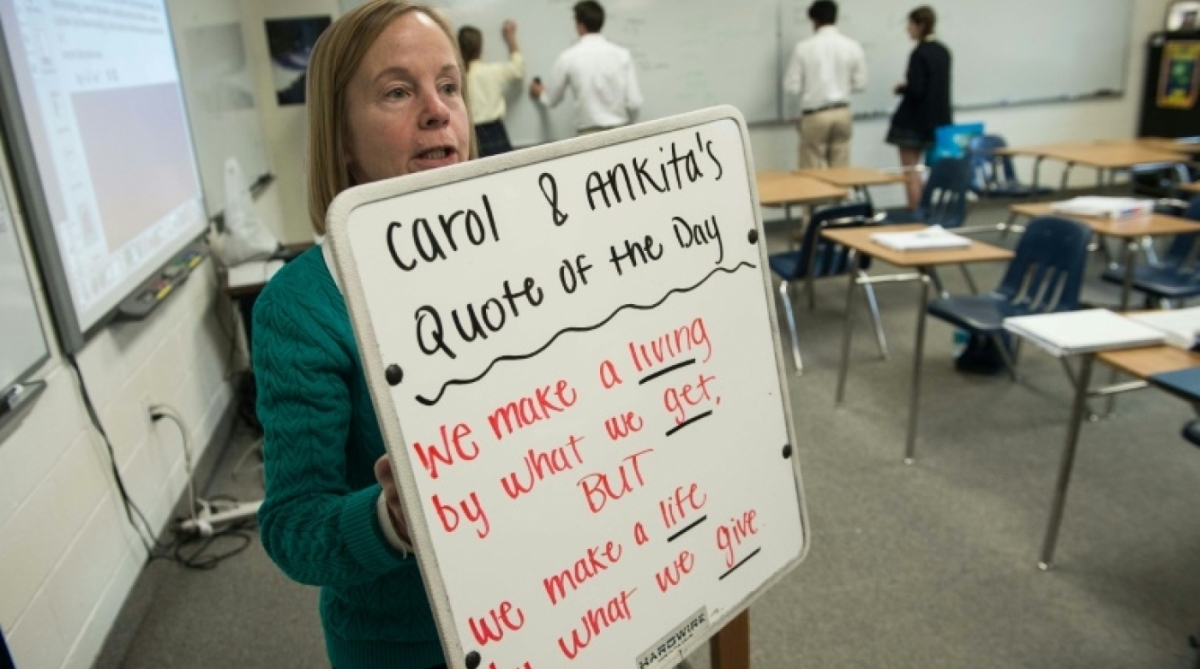 Carol & Ankita's
Quote of the Day
We make a living
by what we get,
BUT
we make a life
by what we give
HARDWIRE